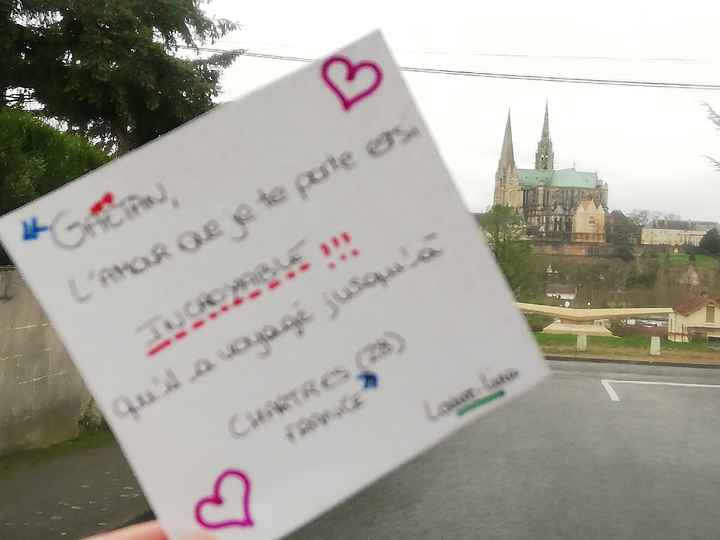 « GAËTAN,
L'AMOUR QUE je te porte est si
INCROYABLE !!!
qu'il a voyagé jusqu'à
CHARTRES (28)
FRANCE »
Laure-Line